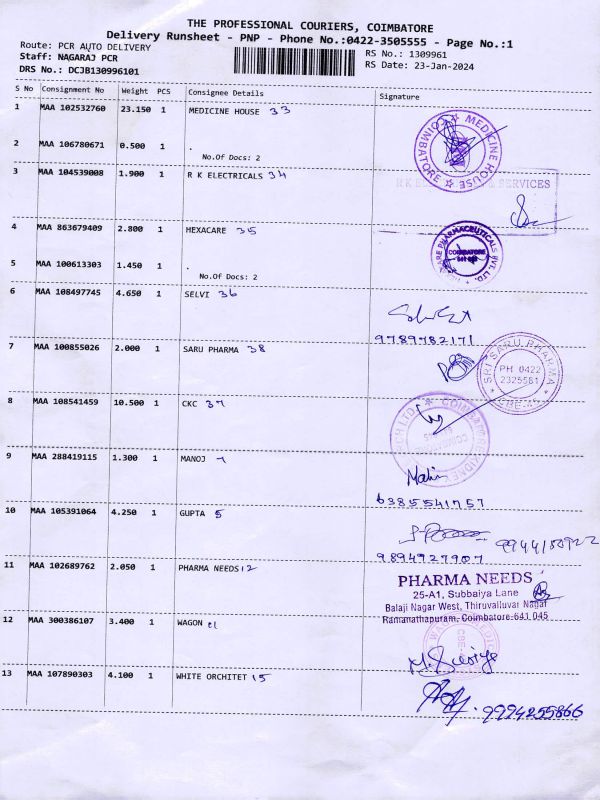 THE PROFESSIONAL COURIERS, COIMBATORE
Delivery Runsheet - PNP - Phone No.:0422-3505555 - Page No.:1
Route: PCR AUTO DELIVERY
RS No.: 1309961
Staff: NAGARAJ PCR
RS Date: 23-Jan-2024
DRS No.: DCJB130996101
S No Consignment No Weight PCS Consignee Details Signature
1 MAA 102532760 23.150 1 MEDICINE HOUSE 33
MEDICINE HOUSE COIMBATORE
2 MAA 106780671 0.500 1 .
No.Of Docs: 2
3 MAA 104539008 1.900 1 R K ELECTRICALS 34
SERVICES
4 MAA 863679409 2.800 1 HEXACARE 35
PHARMACEUTICALS PVT. LTD.
COIMBATORE
5 MAA 100613303 1.450 1 .
No.Of Docs: 2
6 MAA 108497745 4.650 1 SELVI 36
9789782171
7 MAA 100855026 2.000 1 SARU PHARMA 38
SRI SARU PHARMA
PH 0422
2325581
8 MAA 108541459 10.500 1 CKC 37
9 MAA 288419115 1.300 1 MANOJ
6385541757
10 MAA 105391064 4.250 1 GUPTA 5
9894927907
11 MAA 102689762 2.050 1 PHARMA NEEDS 12
PHARMA NEEDS
25-A1, Subbaiya Lane
Balaji Nagar West, Thiruvalluvar Nagar
Ramanathapuram, Coimbatore-641 045
12 MAA 300386107 3.400 1 WAGON
13 MAA 107890303 4.100 1 WHITE ORCHITET 15
9994255866